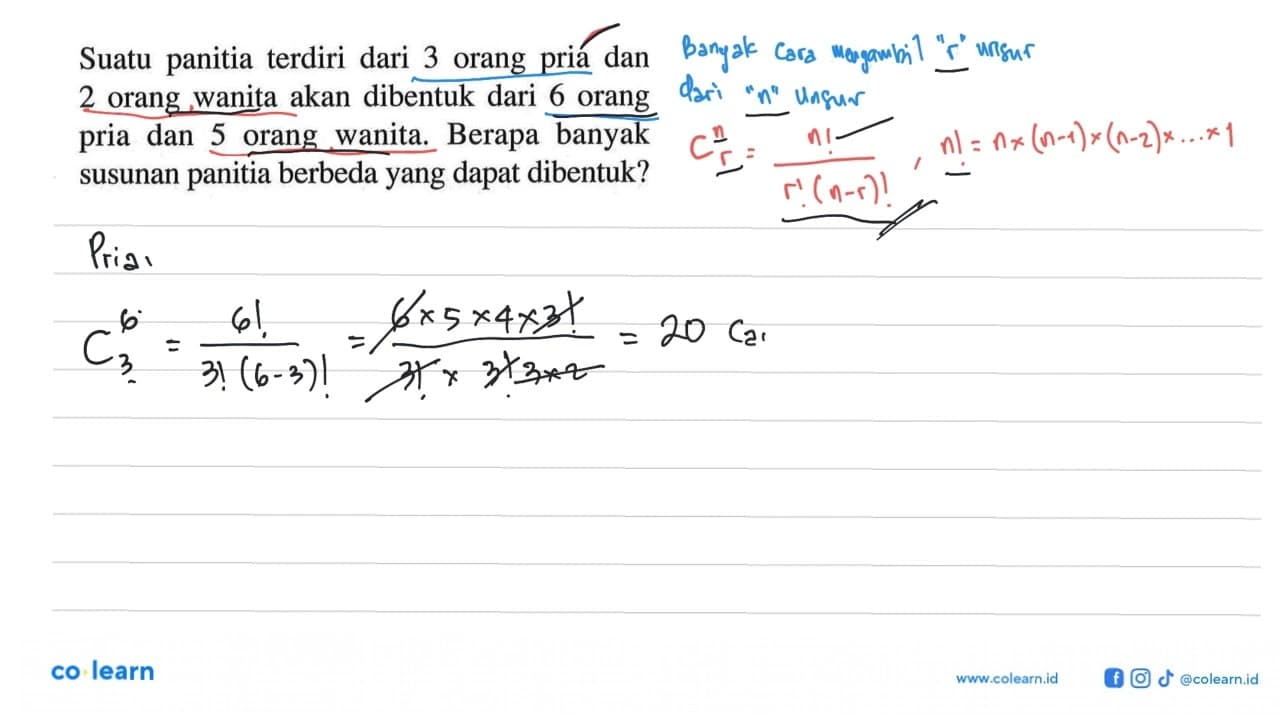 Suatu panitia terdiri dari 3 orang pria dan
2 orang wanita akan dibentuk dari 6 orang
pria dan 5 orang wanita. Berapa banyak
susunan panitia berbeda yang dapat dibentuk?
Banyak Cara mengambil "r" unsur
dari "n" unsur
C^n_r = n! / r!(n-r)! , n! = n×(n-1)×(n-2)×...×1
Pria,
C^6_3 = 6! / 3!(6-3)! = 6×5×4×3! / 3! × 3! 3×2 = 20 Ca
co learn
www.colearn.id
@colearn.id